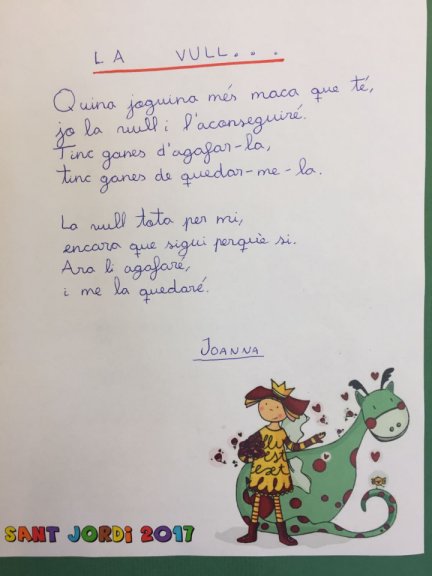 LA VULL...
Quina joguina més maca que té,
jo la vull i l'aconseguiré.
Tinc ganes d'agafar-la,
tinc ganes de quedar-me-la.
La vull tota per mi,
encara que sigui perquè si.
Ara li agafaré,
i me la quedaré.
JOANNA
SANT JORDI 2017